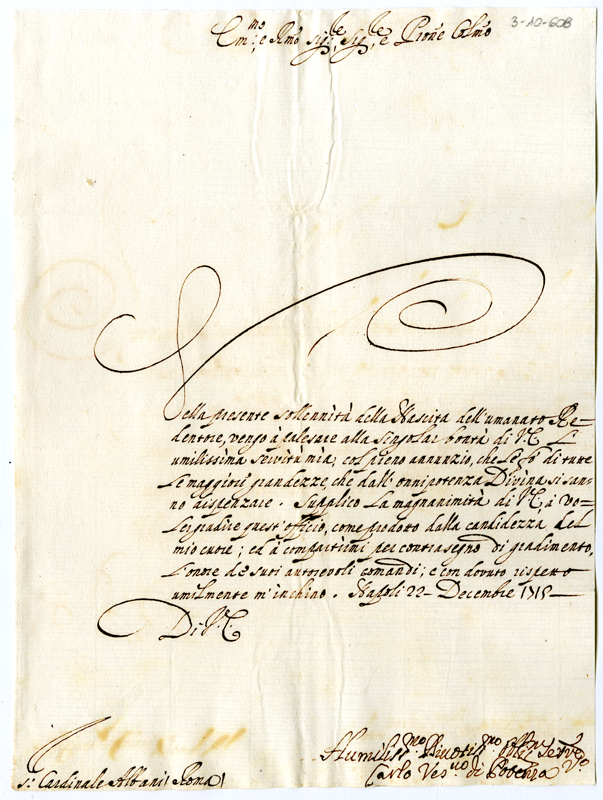 3-10-608
Em:mo e Rmo Sig:re Sig:re e Prone Colmo
Nella presente sollennità della Nascita dell'umanato Re=
dentore, vengo à palesare alla singolar bontà di V.E. l'
umilissima servitù mia; col pieno annunzio, che le fò di tutte
le maggiori grandezze, che dall'onnipotenza Divina si san=
no dispenzare. Supplico la magnanimità di V.E. à vo=
ler gradire quest'officio, come prodotto dalla candidezza del
mio cuore; ed à compartirmi per contrasegno di gradimento,
l'onore de suoi autorevoli comandi; e con dovuto rispetto
umilmente m'inchino. Napoli 22 Decembre 171
Di V.E.
Humiliss:mo Divotis:mo Serve
S: Cardinale Albani (Roma)
Carlo Ves:vo di Potenza